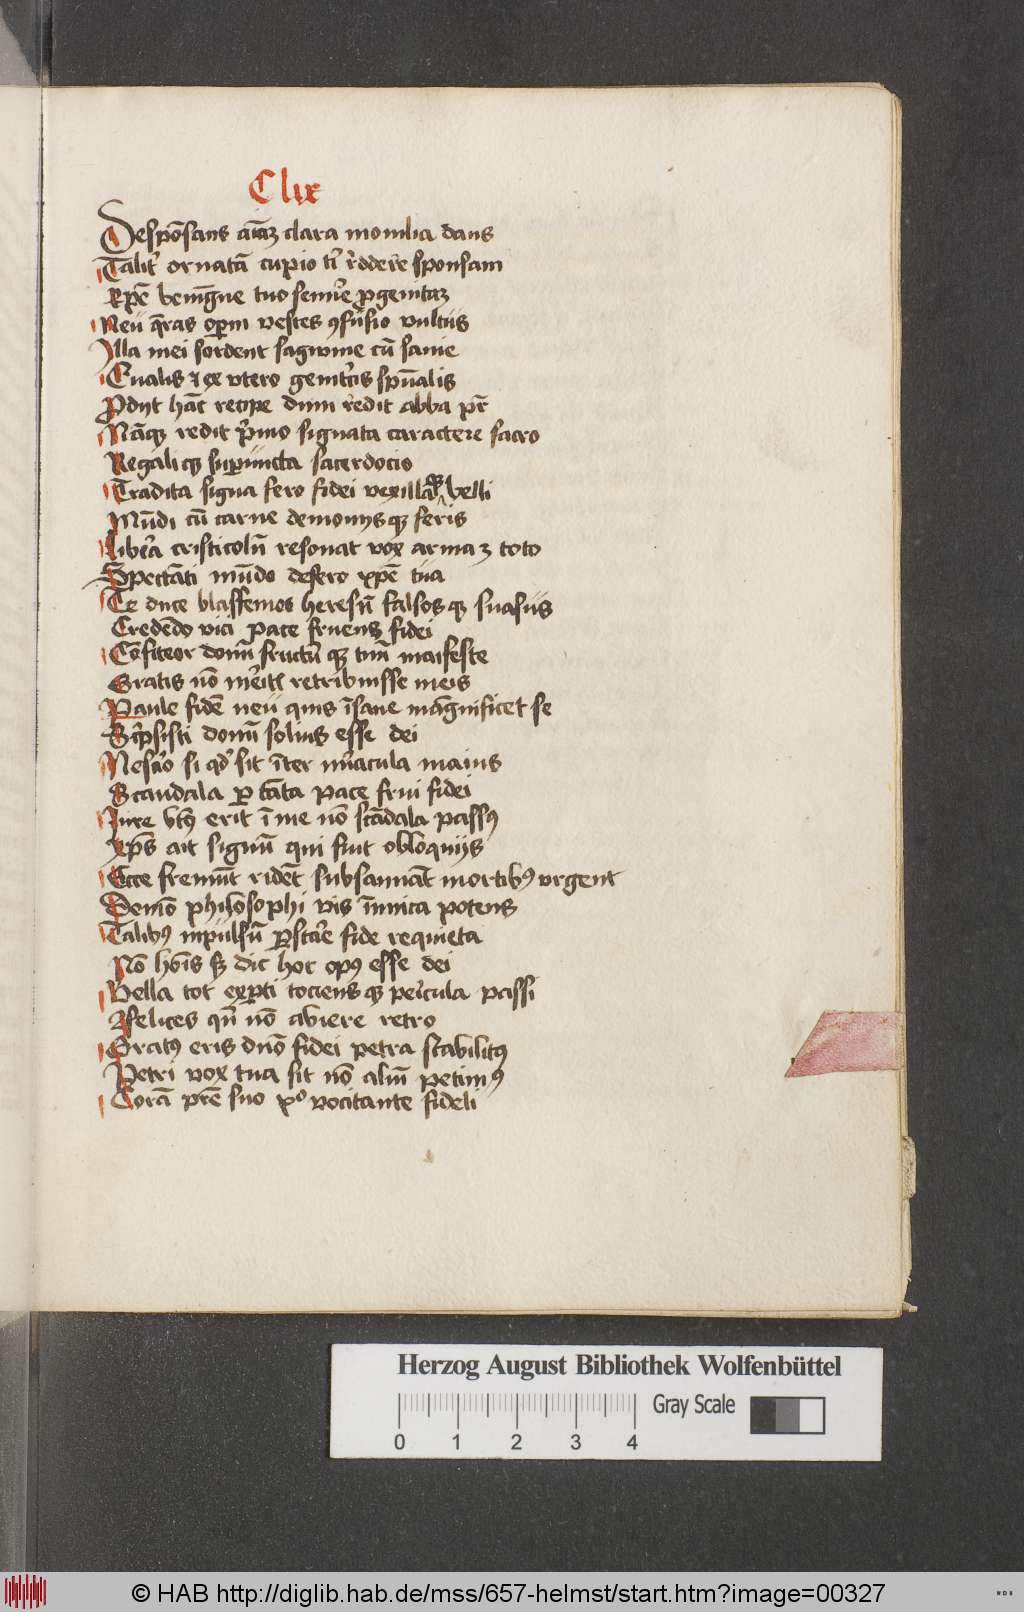 Clix
Despōsans aīaȝ clara monilia dans
Talit' ornatā cupio t' r'ddere sponsam
Xpē benīgne tuo semīe ꝓgenitaȝ
Neū q̄ras oꝑim vestes ꝯfusio vultus
Illa mei sordent sagwine cū sanie
Et ex vtero genit'cis spūalis
Prodijt hāc recipe dum redit abba pr̄
Nāqꝫ redit p'mo signata caractere sacro
Regaliqꝫ suꝑūncta sacerdocio
Tradita signa fero fidei vexillaqꝫ belli
Mūdi cū carne demonijsqꝫ feris
Lib'a cristicolū resonat vox armaȝ toto
Spectāti mūdo defero xpē tua
Te duce blasfemos heresū falsosqꝫ suasus
Credēdo vici pace fruens fidei
Cōfiteor donū fructūqꝫ tuū maifeste
Gratis nō m'itis retribuisse meis
Paule fidē neu quis īsane māgnificet se
Sc'psisti donū solius esse dei
Nescio si qd' sit īter m'acula maius
Scandala ꝑ tāta pace frui fidei
Jure btꝰ erit ī me nō scādala passꝰ
Xp̄s ait signū qui fuit obloquijs
Ecce fremūt ridēt subsannāt mortibꝰ vrgent
Demō philosophi vis īimica potens
Talibꝰ inpulsū ꝑstare fide requieta
Nō hoīs sꝫ dic hoc opꝰ esse dei
Bella tot exꝑti tociensqꝫ pericula passi
felices qn̄ nō abiere retro
Gratꝰ eris dnō fidei petra stabilitꝰ
Petri vox tua sit nō aliū petimꝰ
Corā prē suo xp̄o vocitante fideli
Herzog August Bibliothek Wolfenbüttel
Gray Scale
0 1 2 3 4
© HAB http://diglib.hab.de/mss/657-helmst/start.htm?image=00327